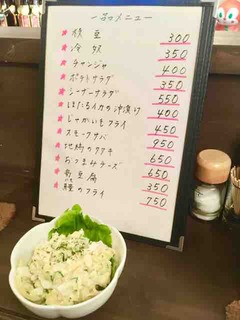 一品メニュー
★枝豆 300
★冷奴 350
★チャンジャ 400
★ポテトサラダ 350
★シーザーサラダ 550
★ほたるイカの沖漬け 400
★じゃがいもフライ 450
★スモークサバ 950
★地鶏のタタキ 650
★おつまみチーズ 650
★煎豆腐 350
★鰻のフライ 750